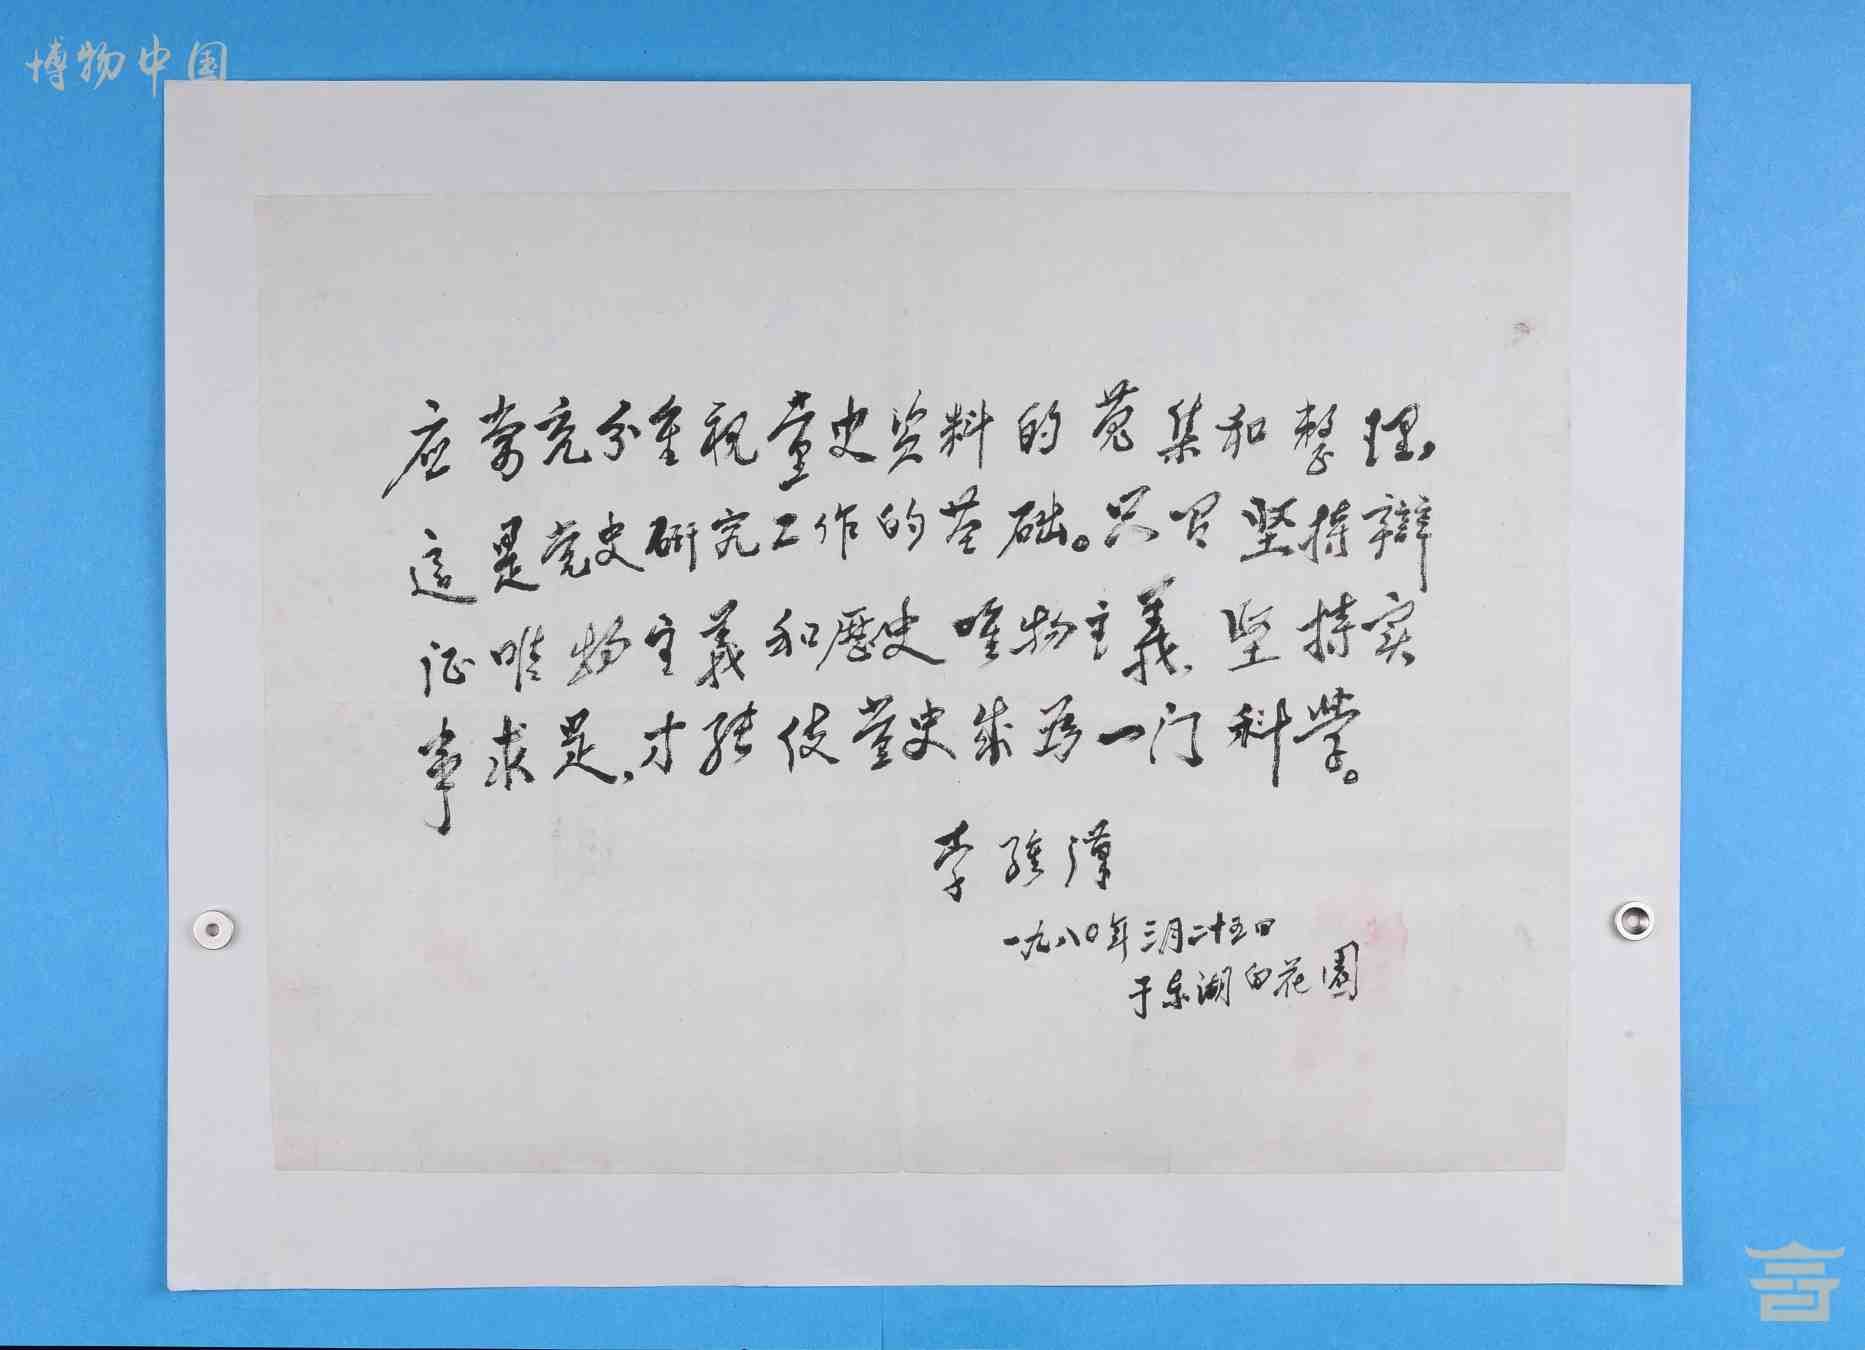 博物中国
应当充分重视党史资料的蒐集和整理，
這是党史研究工作的基础。只有坚持辩
证唯物主義和歷史唯物主義、坚持实
事求是，才能使党史成为一门科学。
李维漢
一九八〇年三月二十五日
于东湖百花園